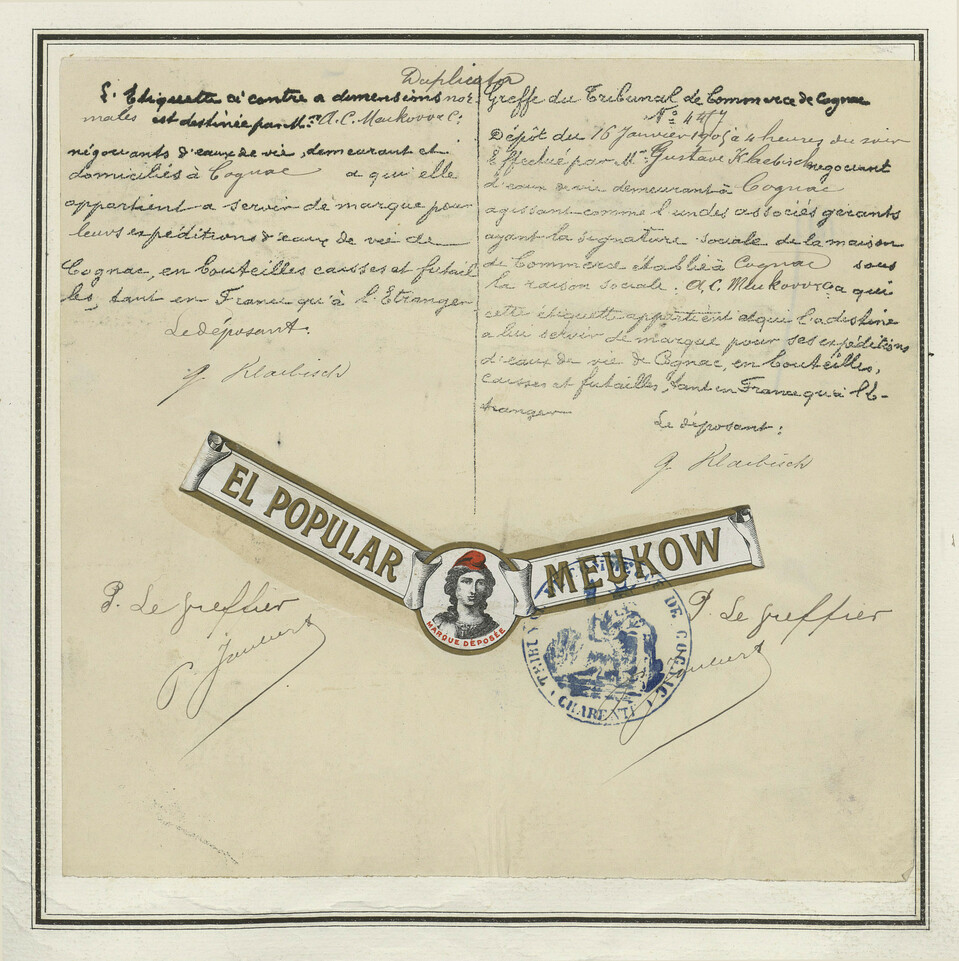 Duplicata
L'Etiquette ci contre a dimensions nor
males est destinée par M.rs A.C. Meukow & C.
négociants d'eaux de vie, demeurant et
domiciliés à Cognac a qui elle
appartient a servir de marque pour
leurs expéditions d'eaux de vie de
Cognac, en bouteilles caisses et futail
les, tant en France qu'à l'Etranger
Le déposant:
G. Klaebisch
Greffe du Tribunal de Commerce de Cognac
N.o
Dépôt du 16 Janvier 1905 à 4 heures du soir
Effectué par M.r Gustave Klaebisch négociant
d'eaux de vie demeurant à Cognac
agissant comme l'un des associés gérants
ayant la signature sociale de la maison
de Commerce établie à Cognac sous
la raison sociale. A.C. Meukow & Co a qui
cette étiquette appartient et qui l'a destine
a lui servir de marque pour ses expéditions
d'eaux de vie de Cognac, en bouteilles,
caisses et futailles, tant en France qu'à l'E-
tranger
Le déposant:
G. Klaebisch
EL POPULAR
MEUKOW
MARQUE DÉPOSÉE
P. Le greffier
P. Le greffier
DE COGNAC
CHARENTE